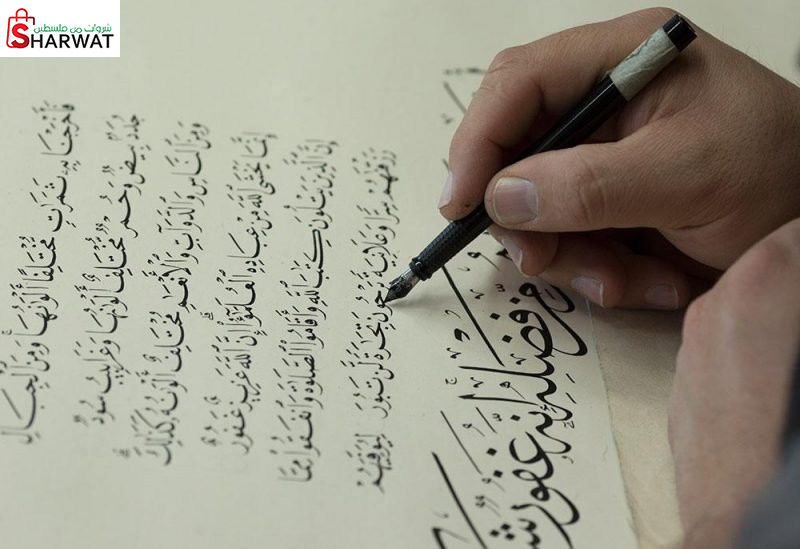 شروات من فلسطين
SHARWAT
فَأَخْرَجْنَا بِهِ ثَمَرَٰتٍ مُّخْتَلِفًا أَلْوَٰنُهَا وَمِنَ ٱلْجِبَالِ
جُدَدٌ بِيضٌ وَحُمْرٌ مُّخْتَلِفٌ أَلْوَٰنُهَا وَغَرَابِيبُ سُودٌ
وَمِنَ ٱلنَّاسِ وَٱلدَّوَآبِّ وَٱلْأَنْعَٰمِ مُخْتَلِفٌ أَلْوَٰنُهُۥ كَذَٰلِكَ
إِنَّمَا يَخْشَى ٱللَّهَ مِنْ عِبَادِهِ ٱلْعُلَمَٰٓؤُا۟ إِنَّ ٱللَّهَ عَزِيزٌ غَفُورٌ
إِنَّ ٱلَّذِينَ يَتْلُونَ كِتَٰبَ ٱللَّهِ وَأَقَامُوا۟ ٱلصَّلَوٰةَ وَأَنفَقُوا۟ مِمَّا
رَزَقْنَٰهُمْ سِرًّا وَعَلَانِيَةً يَرْجُونَ تِجَٰرَةً لَّن تَبُورَ لِيُوَفِّيَهُمْ
فَضْلِهِ إِنَّهُ غَفُورٌ